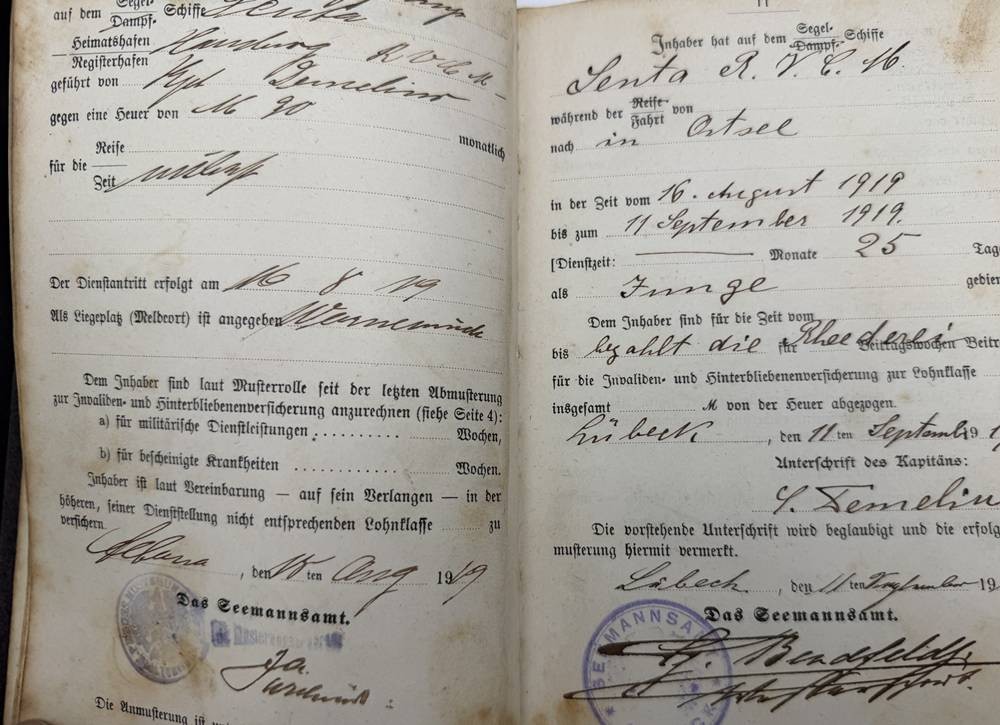 auf dem Segel- Dampf- Schiffe Senta
Heimatshafen Registerhafen Hamburg R V C M
geführt von
gegen eine Heuer von M 90 monatlich
für die Reise Zeit
Der Dienstantritt erfolgt am 16 8 19
Als Liegeplatz (Meldeort) ist angegeben Warnemünde
Dem Inhaber sind laut Musterrolle seit der letzten Abmusterung
zur Invaliden- und Hinterbliebenenversicherung anzurechnen (siehe Seite 4):
a) für militärische Dienstleistungen .......... Wochen,
b) für bescheinigte Krankheiten ............ Wochen.
Inhaber ist laut Vereinbarung — auf sein Verlangen — in der
höheren, seiner Dienststellung nicht entsprechenden Lohnklasse zu
versichern.
Altona, den 15 ten Aug 1919
Das Seemannsamt.
Die Anmusterung ist
11
Inhaber hat auf dem Segel- Dampf- Schiffe
Senta R. V. C. M.
während der Reise Fahrt von
nach in Ostsee
in der Zeit vom 16. August 1919
bis zum 11 September 1919.
[Dienstzeit: Monate 25 Tage
als Junge
Dem Inhaber sind für die Zeit vom
bis bezahlt die Rheederei für Beitragswochen
für die Invaliden- und Hinterbliebenenversicherung zur Lohnklasse
insgesamt M von der Heuer abgezogen.
Lübeck, den 11 ten Septemb. 19
Unterschrift des Kapitäns:
Die vorstehende Unterschrift wird beglaubigt und die
musterung hiermit vermerkt.
Lübeck, den 11 ten September 19
Das Seemannsamt.
SEEMANNSA